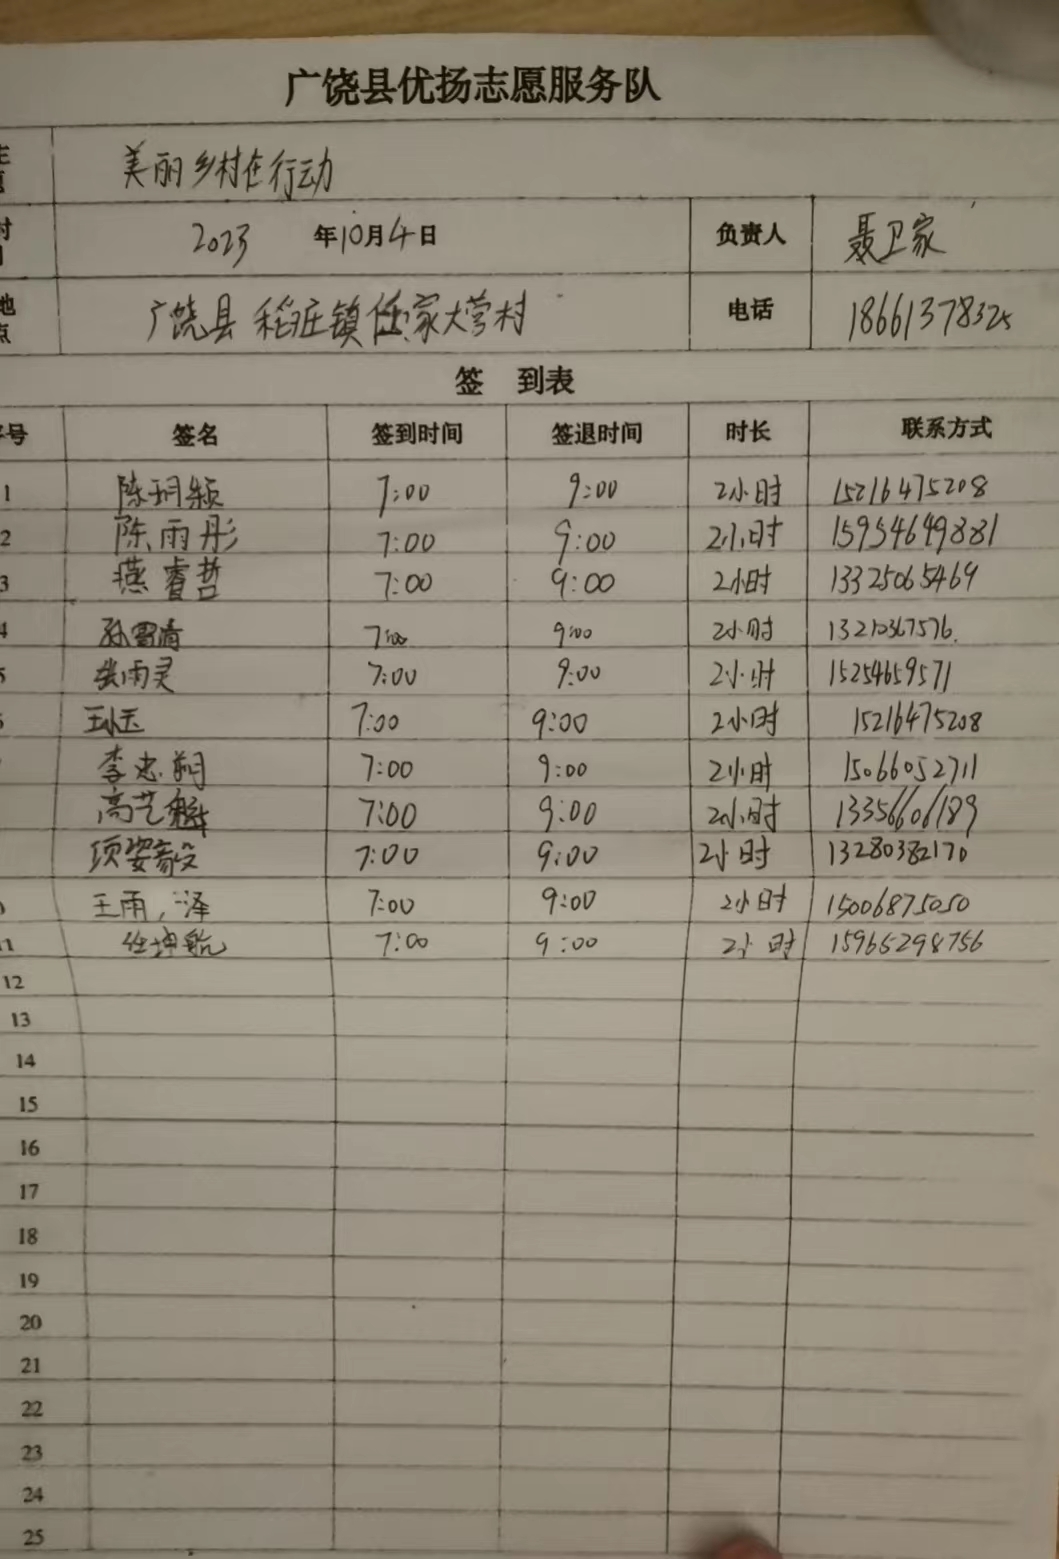 广饶县优扬志愿服务队
美丽乡村在行动
时 2023 年10月4日 负责人 聂卫家
地点 广饶县稻庄镇任家大营村 电话 18661378325
签 到表
序号 签名 签到时间 签退时间 时长 联系方式
1 陈玥颖 7:00 9:00 2小时 15216475208
2 陈雨彤 7:00 9:00 2小时 15954649881
3 燕睿哲 7:00 9:00 2小时 13325065469
4 孙雪清 7:00 9:00 2小时 13210367576.
5 张雨灵 7:00 9:00 2小时 15254659571
7:00 9:00 2小时 15216475208
李忠 7:00 9:00 2小时 15066052711
高艺 7:00 9:00 2小时 13356606189
项姿毅 7:00 9:00 2小时 13280382170
王雨泽 7:00 9:00 2小时 15006875050
11 任坤航 7:00 9:00 2小时 15965298756
12
13
14
15
16
17
18
19
20
21
22
23
24
25